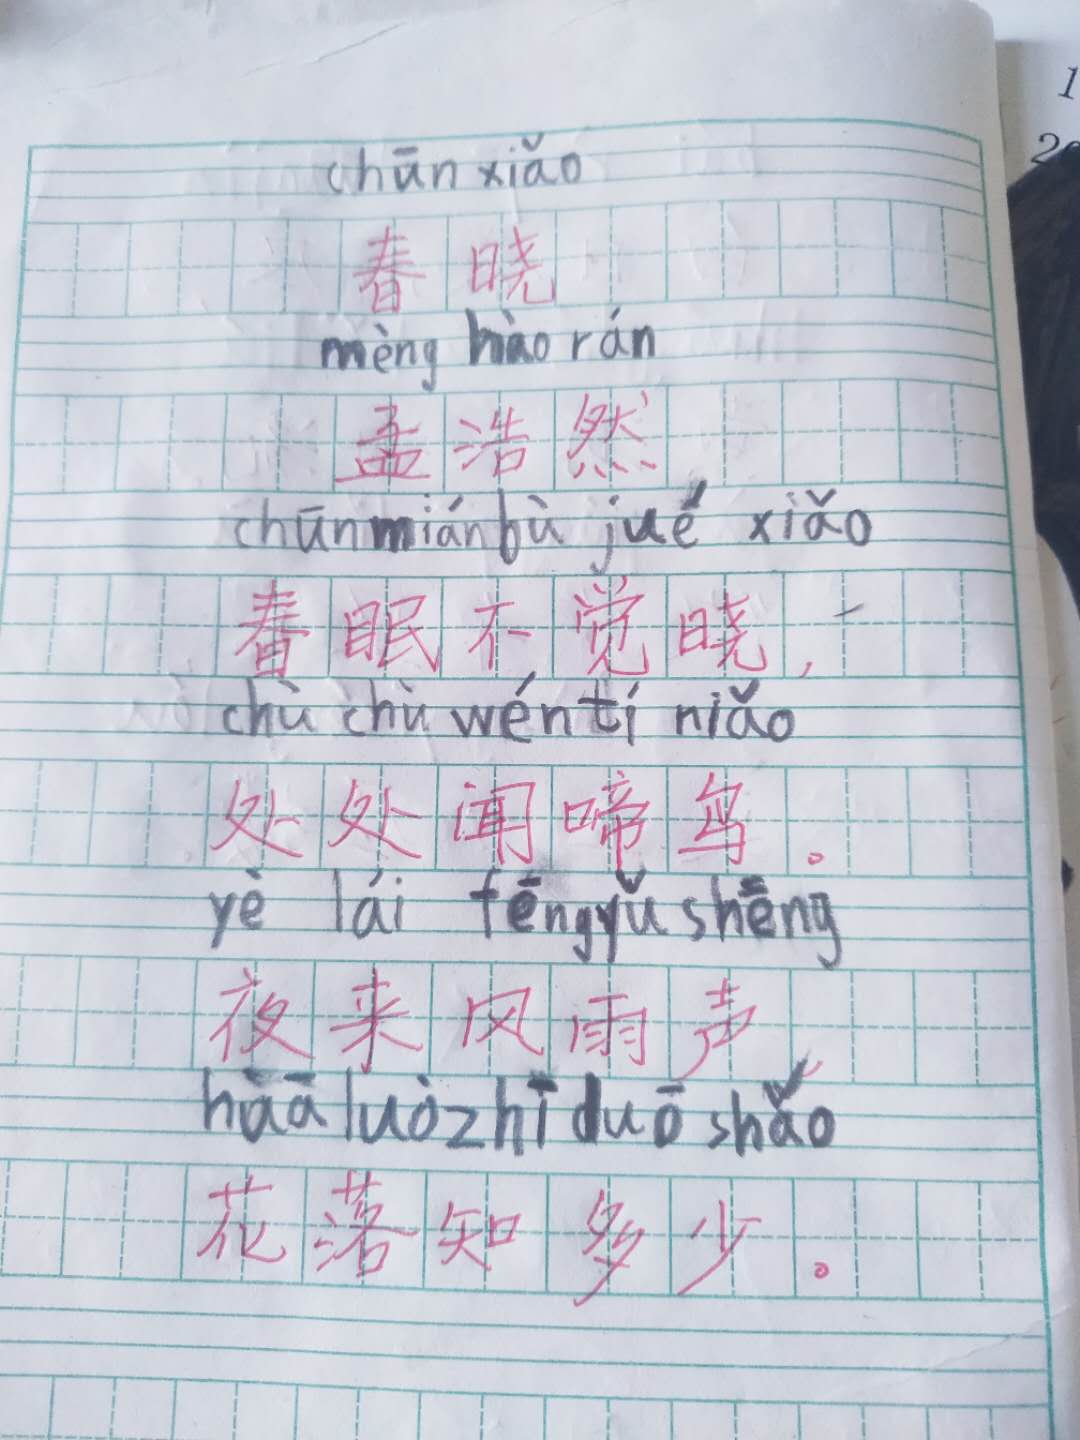 chūn xiǎo
春晓
mèng hào rán
孟浩然
chūn mián bù jué xiǎo
春眠不觉晓，
chù chù wén tí niǎo
处处闻啼鸟。
yè lái fēng yǔ shēng
夜来风雨声，
huā luò zhī duō shǎo
花落知多少。
1